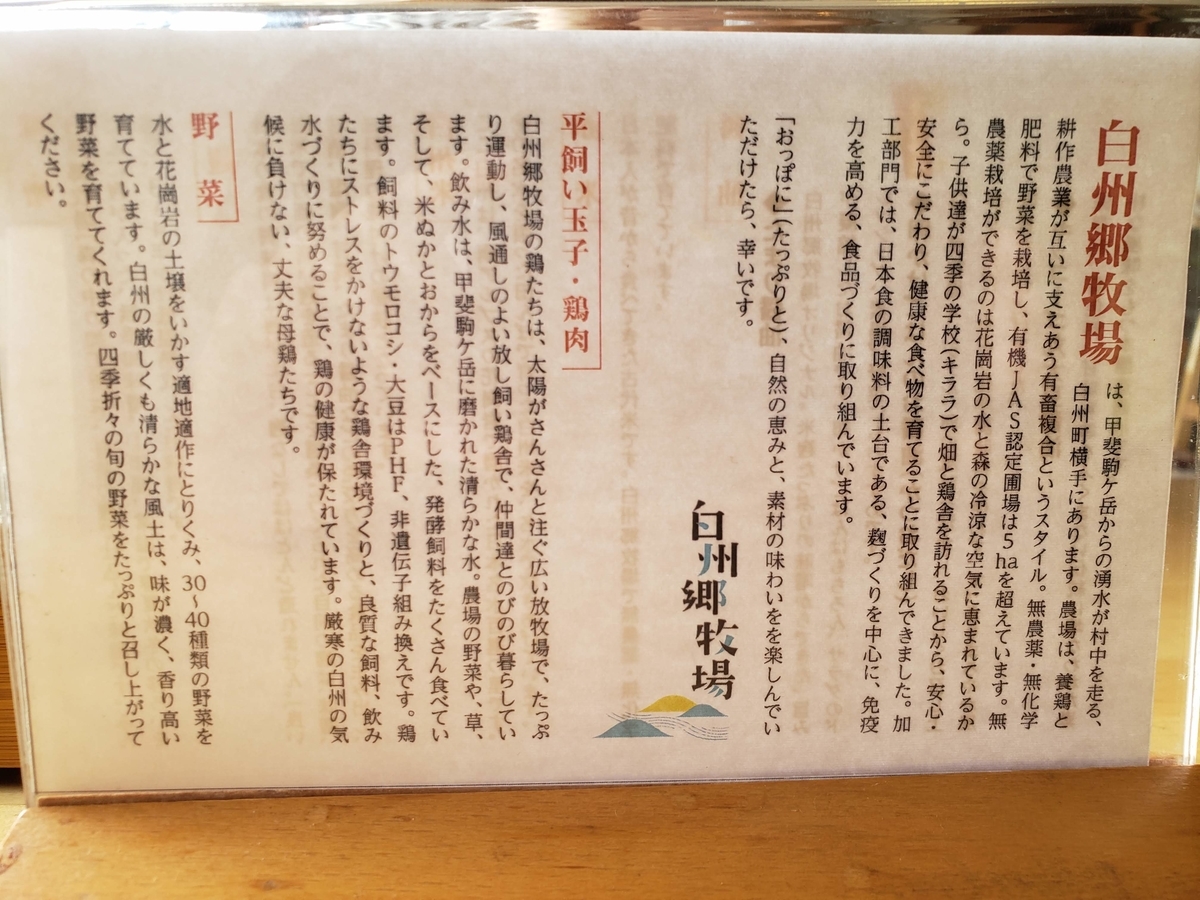 白州郷牧場
は、甲斐駒ケ岳からの湧水が村中を走る、
白州町横手にあります。農場は、養鶏と
耕作農業が互いに支えあう有畜複合というスタイル。無農薬・無化学
肥料で野菜を栽培し、有機JAS認定圃場は5haを超えています。無
農薬栽培ができるのは花崗岩の水と森の冷涼な空気に恵まれているか
ら。子供達が四季の学校(キララ)で畑と鶏舎を訪れることから、安心・
安全にこだわり、健康な食べ物を育てることに取り組んできました。加
工部門では、日本食の調味料の土台である、麹づくりを中心に、免疫
力を高める、食品づくりに取り組んでいます。
「おっぽに」(たっぷりと)、自然の恵みと、素材の味わいをを楽しんでい
ただけたら、幸いです。
白州郷牧場
平飼い玉子・鶏肉
白州郷牧場の鶏たちは、太陽がさんさんと注ぐ広い放牧場で、たっぷ
り運動し、風通しのよい放し飼い鶏舎で、仲間達とのびのび暮らしてい
ます。飲み水は、甲斐駒ケ岳に磨かれた清らかな水。農場の野菜や、草、
そして、米ぬかとおからをベースにした、発酵飼料をたくさん食べてい
ます。飼料のトウモロコシ・大豆はPHF、非遺伝子組み換えです。鶏
たちにストレスをかけないような鶏舎環境づくりと、良質な飼料、飲み
水づくりに努めることで、鶏の健康が保たれています。厳寒の白州の気
候に負けない、丈夫な母鶏たちです。
野菜
水と花崗岩の土壌をいかす適地適作にとりくみ、30~40種類の野菜を
育てています。白州の厳しくも清らかな風土は、味が濃く、香り高い
野菜を育ててくれます。四季折々の旬の野菜をたっぷりと召し上がって
ください。